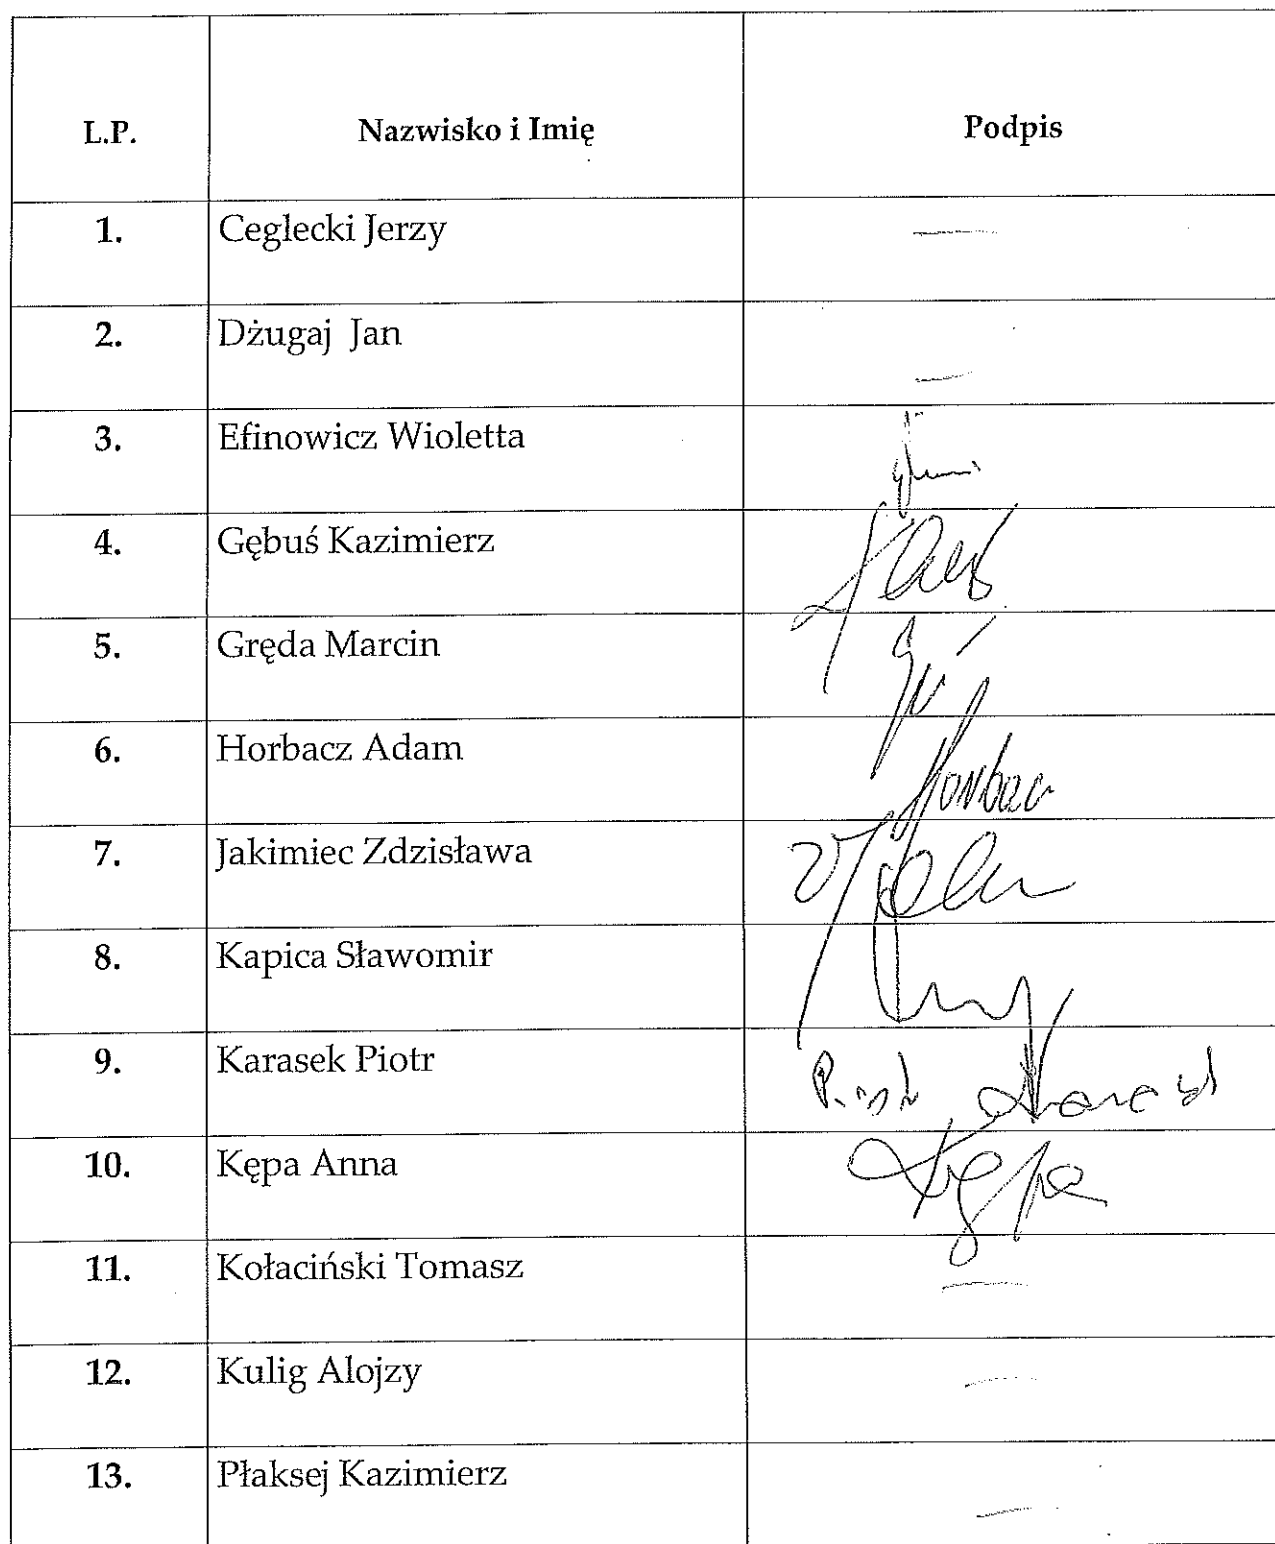 L.P. Nazwisko i Imię Podpis
1. Ceglecki Jerzy —
2. Dżugaj Jan —
3. Efinowicz Wioletta
4. Gębuś Kazimierz
5. Gręda Marcin
6. Horbacz Adam Horbacz
7. Jakimiec Zdzisława
8. Kapica Sławomir
9. Karasek Piotr Piotr Karasek
10. Kępa Anna Kępa
11. Kołaciński Tomasz —
12. Kulig Alojzy —
13. Płaksej Kazimierz —